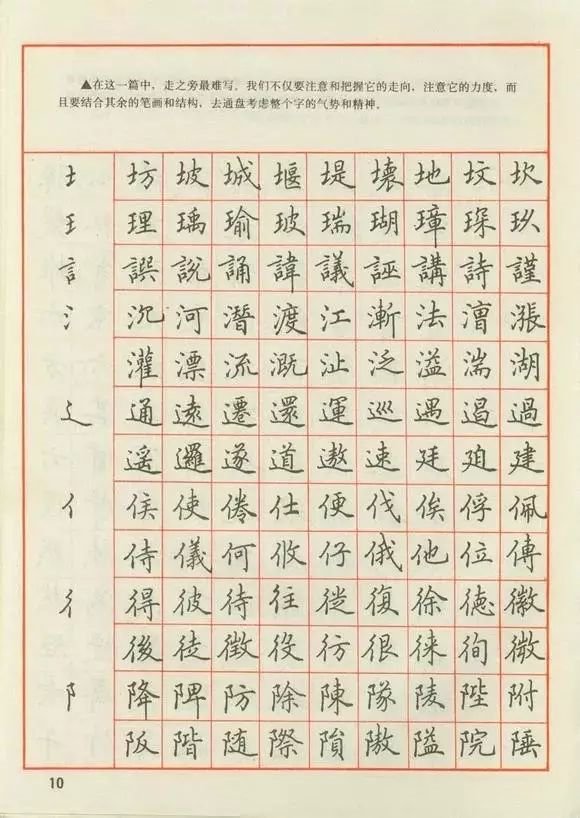 ▲在这一篇中，走之旁最难写。我们不仅要注意和把握它的走向，注意它的力度，而
且要结合其余的笔画和结构，去通盘考虑整个字的气势和精神。
土 坊 坡 城 堰 堤 壊 地 坟 坎
王 理 瑀 瑜 玻 瑞 瑚 璋 琛 玖
訁 譔 說 誦 諱 議 誣 講 詩 謹
氵 沉 河 潛 渡 江 漸 法 漕 漲
灌 漂 流 溉 沚 泛 溢 湍 湖
辶 通 遠 遷 還 運 巡 遇 遏 過
遥 邏 遂 道 遨 速 廷 廸 建
亻 侯 使 倦 仕 便 伐 俟 俘 佩
侍 儀 何 攸 仔 俄 他 位 傳
彳 得 彼 待 往 從 復 徐 德 徽
後 徒 徵 役 彷 很 徠 徇 微
阝 降 陴 防 除 陳 隊 陵 陛 附
阪 階 随 際 隕 隞 隘 院 陲
10